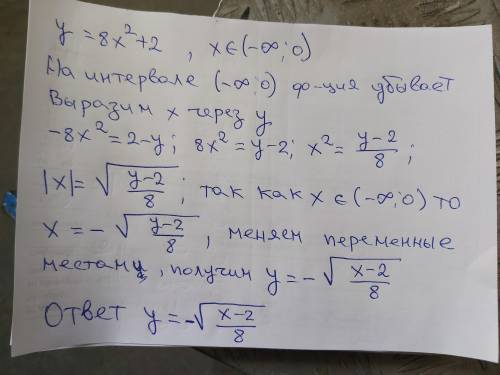 y = 8x²+2 , x∈(-∞;0)
На интервале (-∞;0) ф-ция убывает
Выразим x через y
-8x²=2-y; 8x²=y-2; x²=\frac{y-2}{8};
|x|=\sqrt{\frac{y-2}{8}}; так как x∈(-∞;0) то
x = -\sqrt{\frac{y-2}{8}}, меняем переменные
местами, получим y=-\sqrt{\frac{x-2}{8}}
Ответ y=-\sqrt{\frac{x-2}{8}}